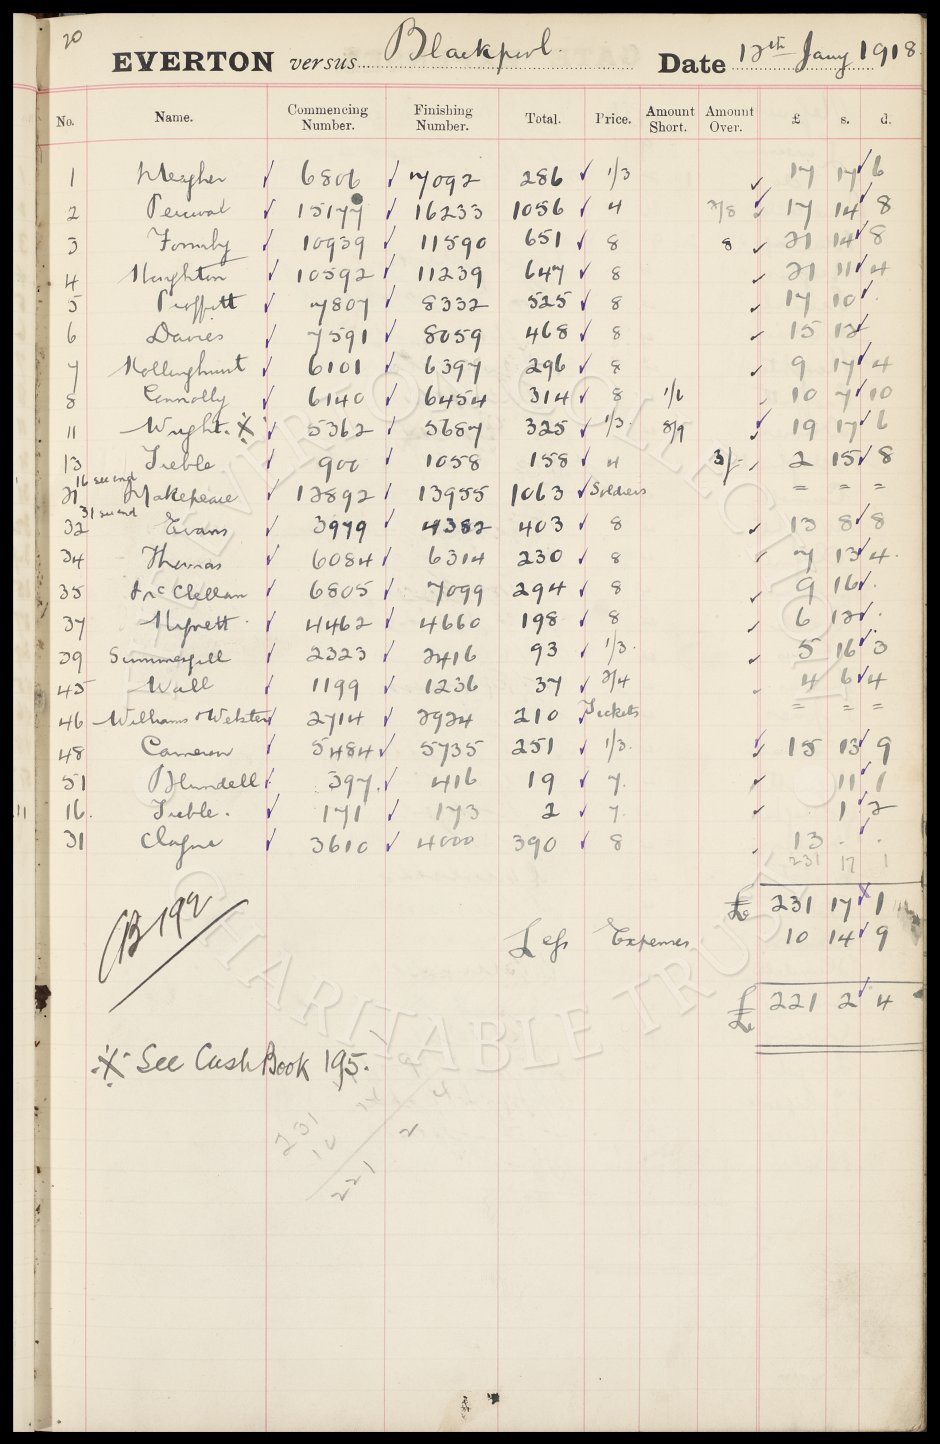 20
EVERTON versus Blackpool. Date 12th Jany 1918.
No. Name. Commencing Number. Finishing Number. Total. Price. Amount Short. Amount Over. £ s. d.
1 Meagher 6806 7092 286 1/3 17 17 6
2 Percival 15177 16233 1056 4 2/8 17 14 8
3 Formby 10939 11590 651 8 8 21 14 8
4 Houghton 10592 11239 647 8 21 11 4
5 Proffitt 7807 8332 525 8 17 10 .
6 Davies 7591 8059 468 8 15 12
7 Hollinghurst 6101 6397 296 8 9 17 4
8 Connolly 6140 6454 314 8 1/6 10 7 10
11 Wright. ※ 5362 5687 325 1/3 8/9 19 17 6
13 Treble 900 1058 158 4 3/= 2 15 8
16 second
21 Makepeace 12892 13955 1063 Soldiers = = =
31 second
32 Evans 3979 4382 403 8 13 8 8
34 Thomas 6084 6314 230 8 7 13 4.
35 McClellan 6805 7099 294 8 9 16 .
37 Hignett 4462 4660 198 8 6 12 .
39 Summersgill 2323 2416 93 1/3. 5 16 3
45 Wall 1199 1236 37 2/4 4 6 4
46 Williams & Webster 2714 2924 210 Tickets = = =
48 Cameron 5484 5735 251 1/3. 15 13 9
51 Blundell 397. 416 19 7. 11 1
16. Treble. 171 173 2 7. 1 2
31 Clague 3610 4000 390 8 13 . .
231 17 1
£ 231 17 1
B 199
Less Expenses 10 14 9
£ 221 2 4
※ See Cash Book 195.
231
10
221 2
THE EVERTON COLLECTION
CHARITABLE TRUST